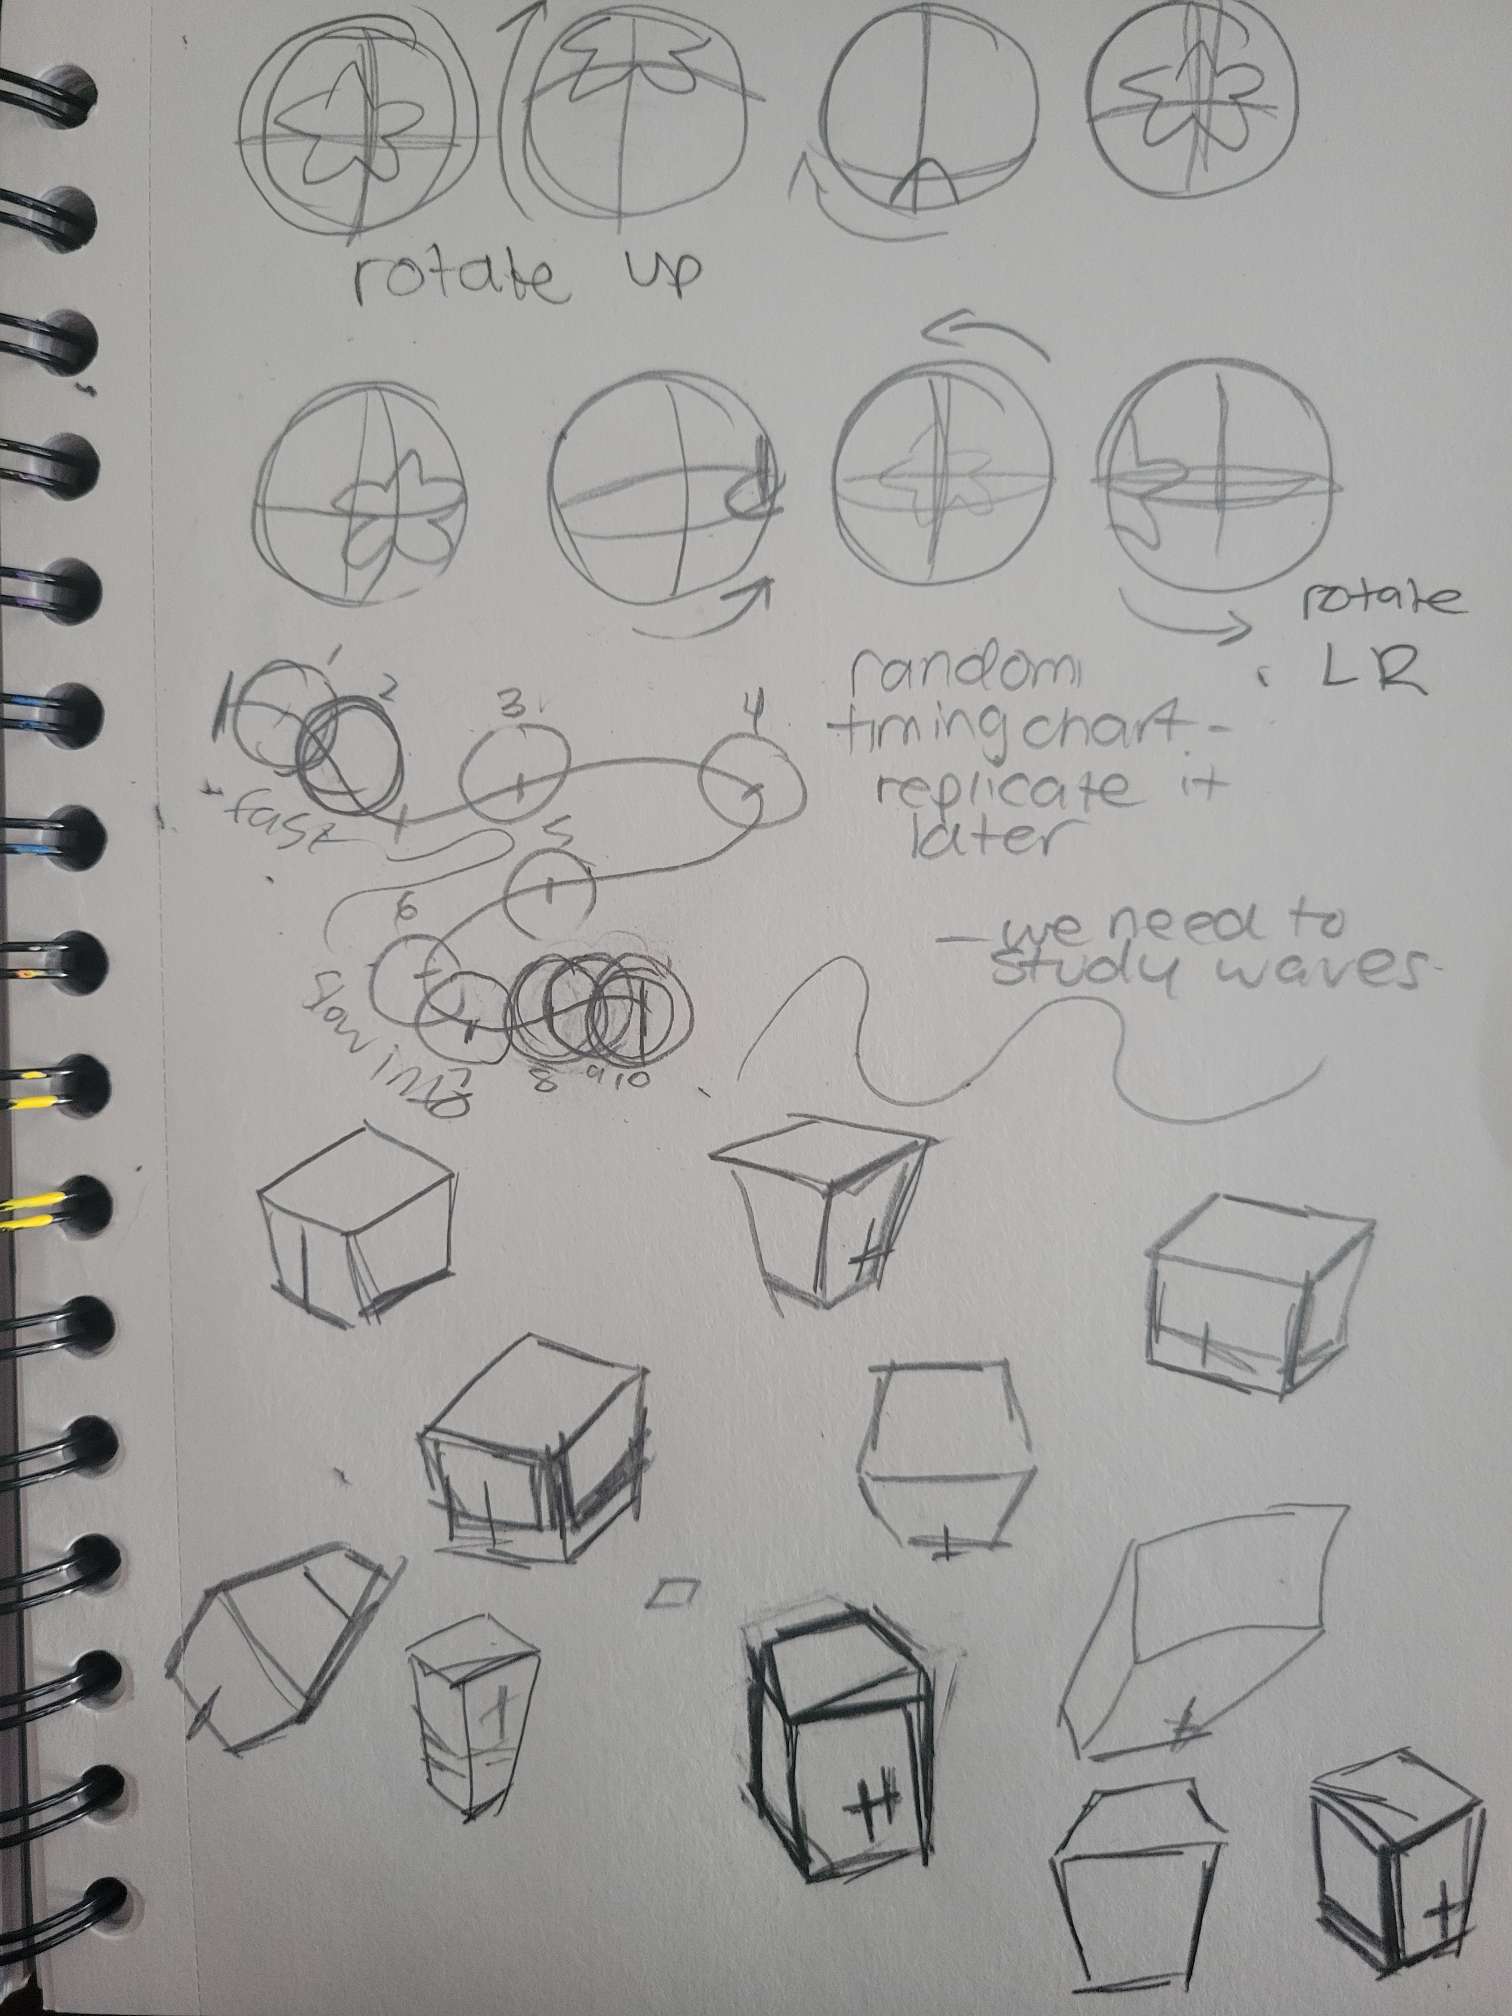 rotate up
rotate
LR
random
timing chart -
replicate it
later
1
2
3
4
fast
5
6
- we need to
study waves
slow in
7
8
9
10